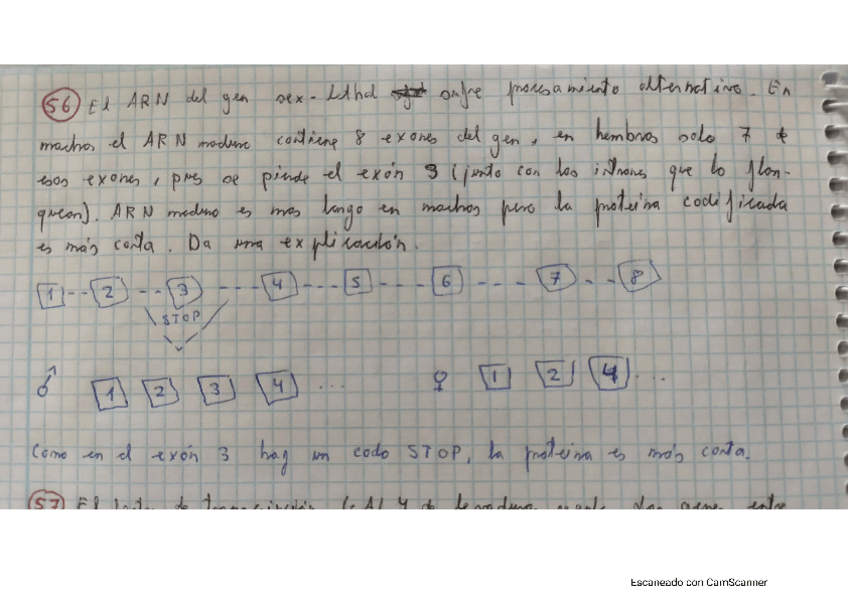 56 El ARN del gen sex-lethal sufre procesamiento alternativo. En
machos el ARN maduro contiene 8 exones del gen, en hembras solo 7 de
esos exones, pues se pierde el exón 3 (junto con los intrones que lo flan-
quean). ARN maduro es mas largo en machos pero la proteina codificada
es más corta. Da una explicación.
1 2 3 4 5 6 7 8
STOP
♂ 1 2 3 4 ... ♀ 1 2 4 ...
Como en el exón 3 hay un codo STOP, la proteina es más corta.
57 El
Escaneado con CamScanner